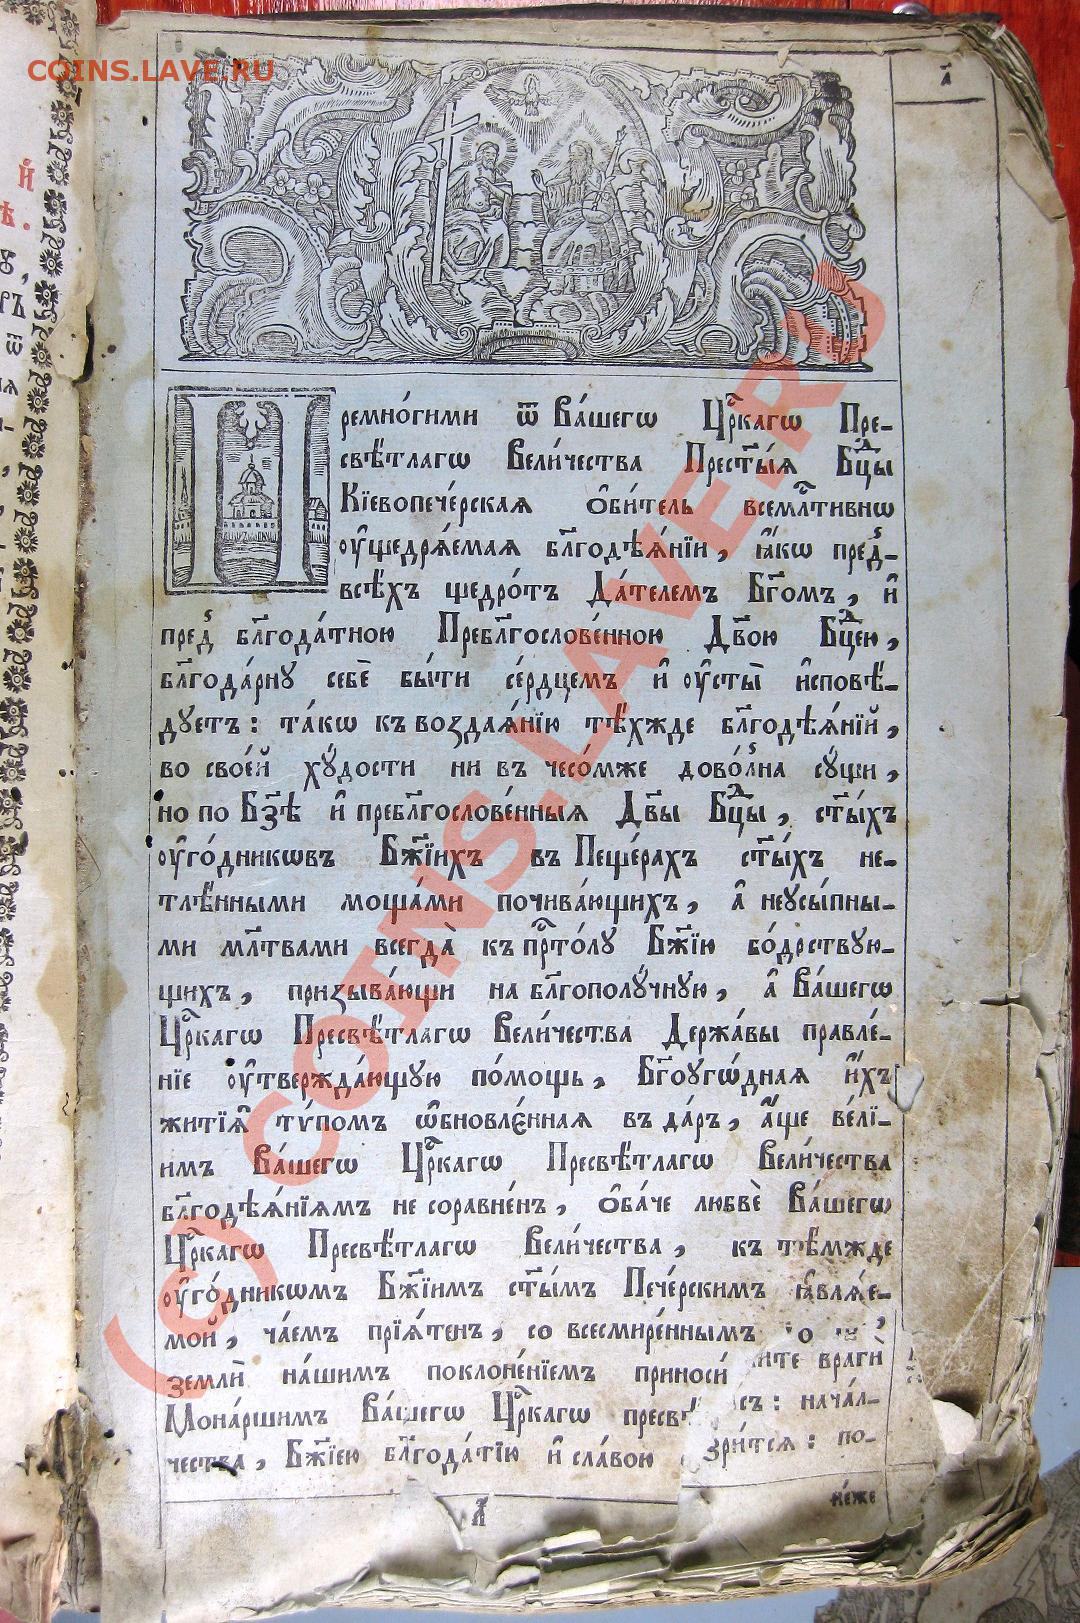 COINS.LAVE.RU
а҃
Премно́гими ѿ Ва́шегѡ Цр҇каго Пре-
свѣ́тлагѡ Вели́чества Прест҃ы́ѧ Бц҃ы
Кїевопече́рскаѧ ѻ҆би́тель всемлⷭ҇тивнѡ
ᲂу҆щедрѧ́емаѧ бл҃годѣѧ́нїи, ꙗ҆́кѡ пред̾-
всѣ́хъ щедро́тъ Да́телемъ Бг҃омъ, и҆
пред̾ бл҃года́тною Пребл҃гослове́нною Дв҃ою Бц҃ею,
бл҃года́рну себѐ бы́ти се́рдцемъ и҆ ᲂу҆сты̀ и҆сповѣ́-
дуетъ: та́кѡ къ воздаѧ́нїю тѣ́хжде бл҃годѣѧ́нїй,
во свое́й ху́дости ни въ чесо́мже дово́л̾на су́щи,
но по Бз҃ѣ и҆ пребл҃гослове́нныѧ Дв҃ы Бц҃ы, ст҃ы́хъ
ᲂу҆го́дникѡвъ Бж҃їихъ въ Пеще́рахъ ст҃ы́хъ не-
тлѣ́нными моща́ми почива́ющихъ, а҆ неусы́пны-
ми мл҃твами всегда̀ къ прⷭ҇то́лу Бж҃їю бо́дрствую-
щихъ, призыва́ющи на бл҃гополу́чную, а҆ Ва́шегѡ
Цр҇кагѡ Пресвѣ́тлагѡ Вели́чества Держа́вы правле́-
нїе ᲂу҆твержда́ющую по́мощь, Бг҃оугѡ́днаѧ и҆́хъ
житїѧ̑ тѵ́помъ ѡ҆бновлє́ннаѧ въ да́ръ, а҆́ще ве́лї-
имъ Ва́шегѡ Цр҇кагѡ Пресвѣ́тлагѡ Вели́чества
бл҃годѣѧ́нїѧмъ не соравне́нъ, ѻ҆ба́че любвѐ Ва́шегѡ
Цр҇кагѡ Пресвѣ́тлагѡ Вели́чества, къ тѣ́мжде
ᲂу҆го́дникѡмъ Бж҃їимъ ст҃ы́мъ Пече́рскимъ ꙗ҆влѧ́е-
мой, ча́емъ прїѧ́тенъ, со всесмире́ннымъ
земли̑ на́шимъ поклоне́нїемъ врагѝ
Мона́ршимъ Ва́шегѡ Цр҇кагѡ нача́л-
чества, Бж҃їею бл҃года́тїю и҆ сла́вою зри́тсѧ: по-
а҃ не́же
(C) COINS.LAVE.RU